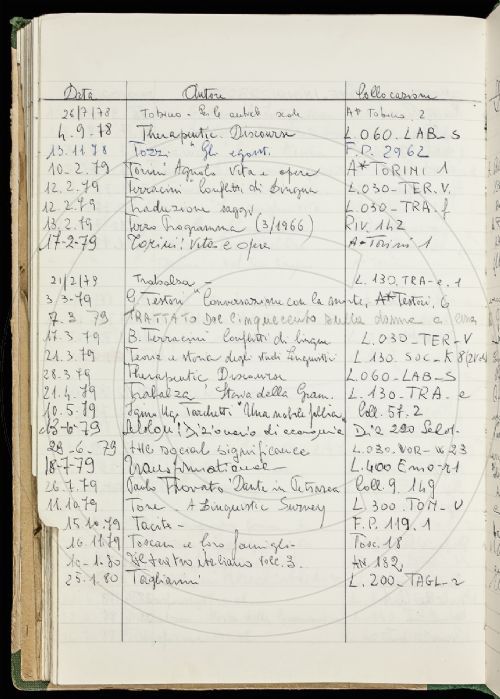 Data Autori Collocazione
26/7/78 Tobino - antichi A* Tobino 2
4.9.78 Therapeutic Discourse L.060.LAB-S
13.11.78 Tozzi "Gli egoisti. F.P. 2962
10-2.79 Torini Agnolo Vita e opere A*TORINI 1
12.2.79 Terracini Conflitti di lingua L.030-TER.V.
12.2.79 Traduzione saggi L.030-TRA.f
13.2.79 Terzo Programma (3/1966) Riv. 142
17-2-79 Torini: Vita e opere A*Torini 1
21/2/79 Trabalza - L.130.TRA-e.1
3.3.79 G. Testori "Conversazione con la morte, A*Testori, 6
7.3.79 TRATTATO Del Cinquecento sulla donna
17.3.79 B. Terracini Conflitti di lingua L.030-TER-V
21.3.79 Teoria e storia degli studi linguistici L.130.SOC-K8
28.3.79 Therapeutic Discourse L.060-LAB-S
21.4.79 Trabalza Storia della Gram. L.130-TRA-e
10.5.79 Ugo Tarchetti "Una nobile follia" Coll. 57.2
6.79 Dizionario di economia Diz 220
28-6.79 The social significance L.030.WOR-W23
18-7-79 Transformational L.400
26.7.79 Paolo Trovato Dante in Petrarca Coll.9.149
11.10.79 Tone - A Linguistic Survey L.300.TON-V
15.10.79 Tacito - F.P.119.1
16.11.79 Toscani e loro famiglie Tosc.18
1.80 Il teatro italiano vol. 3. AN.182
25.1.80 Tagliavini L.200-TAGL-2